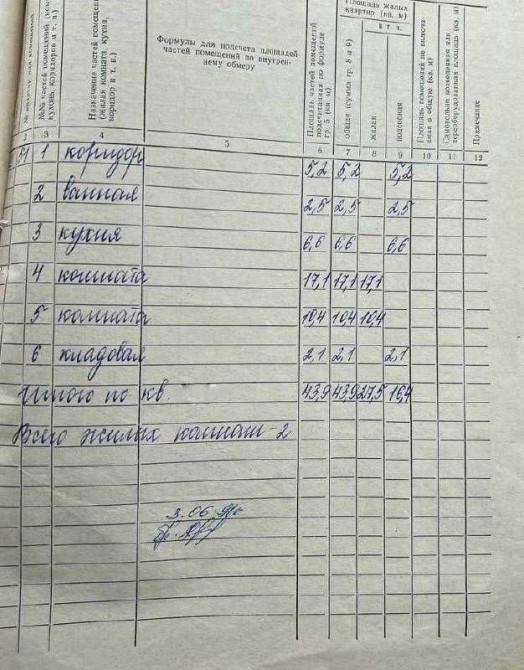 Площадь жилых
квартир (кв. м)
в т. ч.
№№ частей помещений (комн.,
кухонь, коридоров и т. п.)
Назначение частей помещений
(жилая комната, кухня,
коридор и т. п.)
Формулы для подсчета площадей
частей помещений по внутрен-
нему обмеру
Площадь частей помещений
подсчитанная по формуле
гр. 5 (кв. м)
общая (сумма гр. 8 и 9)
жилая
подсобная
Площадь помещений не включа-
емая в общую (кв. м)
Самовольно возведенная или
переоборудованная площадь (кв. м)
Примечание
2 3 4 5 6 7 8 9 10 11 12
1 коридор 5,2 5,2 5,2
2 ванная 2,5 2,5 2,5
3 кухня 6,6 6,6 6,6
4 комната 17,1 17,1 17,1
5 комната 10,4 10,4 10,4
6 кладовая 2,1 2,1 2,1
Итого по кв. 43,9 43,9 27,5 16,4
Всего жилых комнат - 2
3.06